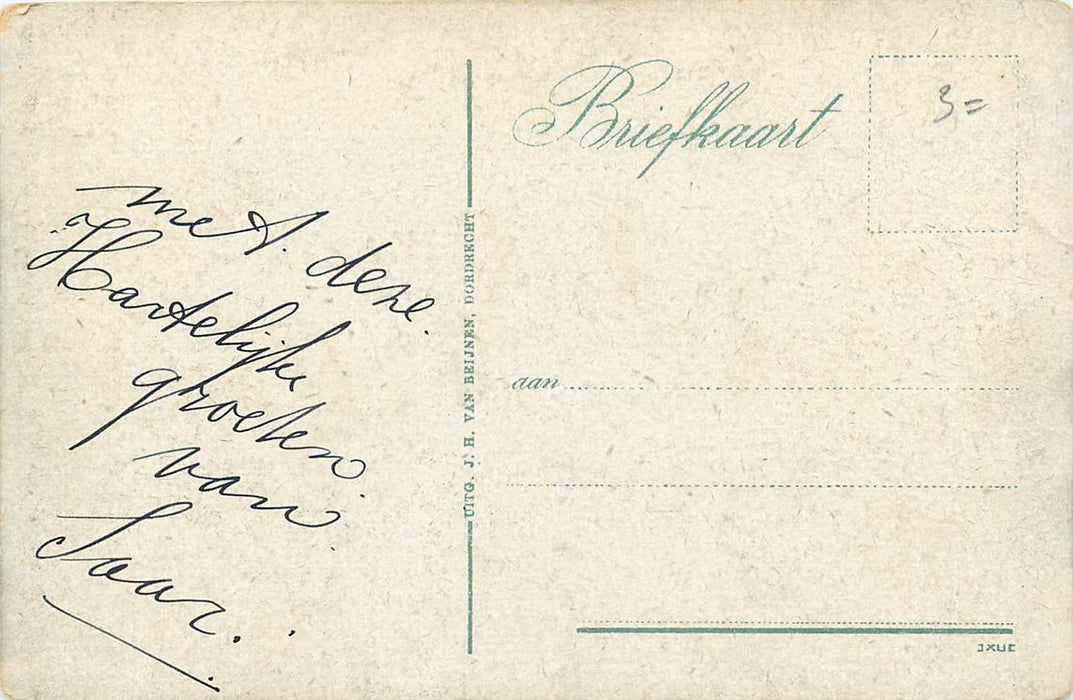 met. deze.
Hartelijke
groeten.
van.
Saar.
UITG. J. H. VAN BEIJNEN, DORDRECHT
Briefkaart
3=
aan
JXUC